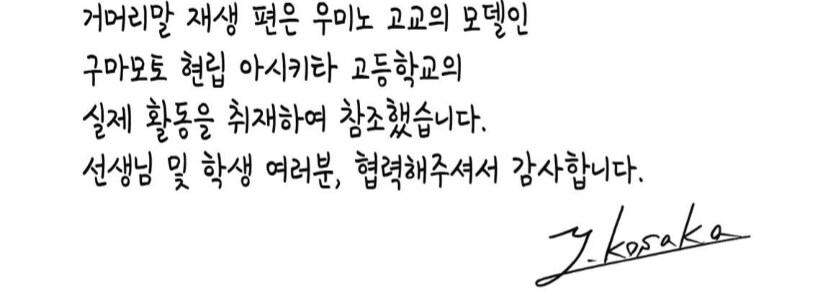 거머리말 재생 편은 우미노 고교의 모델인
구마모토 현립 아시키타 고등학교의
실제 활동을 취재하여 참조했습니다.
선생님 및 학생 여러분, 협력해주셔서 감사합니다.
Y.Kosaka